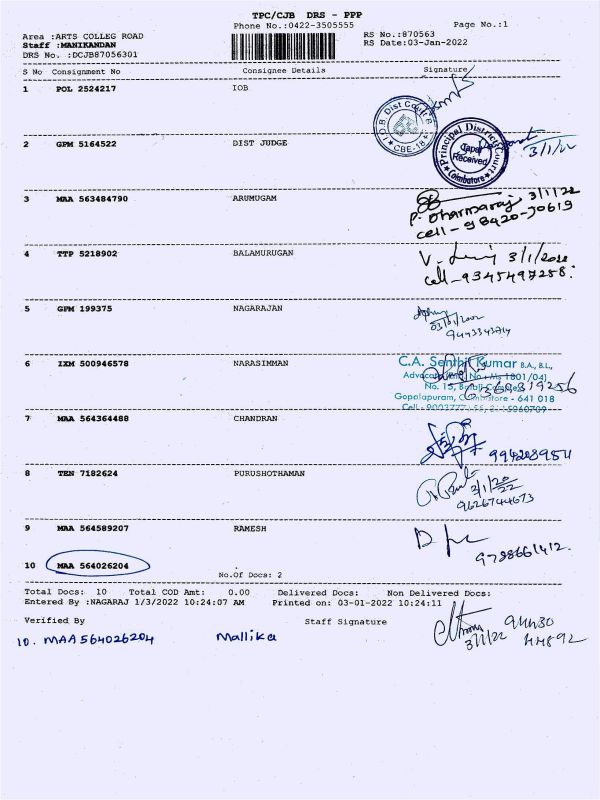 TPC/CJB DRS - PPP
Phone No.:0422-3505555 Page No.:1
Area :ARTS COLLEG ROAD RS No.:870563
Staff :MANIKANDAN RS Date:03-Jan-2022
DRS No. :DCJB87056301
S No Consignment No Consignee Details Signature
1 POL 2524217 IOB
I.O.B Dist Court B
CBE-18
2 GPM 5164522 DIST JUDGE
Principal District Court
Tapal
Received
Coimbatore
3/1/22
3 MAA 563484790 ARUMUGAM
3/1/22
P. Dharmaraj
cell - 98420-70619
4 TTP 5218902 BALAMURUGAN
V. 3/1/2022
cell - 9345497258.
5 GPM 199375 NAGARAJAN
03/01/2022
6 IXM 500946578 NARASIMMAN
C.A. Senthil Kumar B.A., B.L.,
No. 15,
Gopalapuram, Coimbatore - 641 018
7 MAA 564364488 CHANDRAN
8 TEN 7182624 PURUSHOTHAMAN
3/1/2022
9626744673
9 MAA 564589207 RAMESH
9788661412.
10 MAA 564026204
No.Of Docs: 2
Total Docs: 10 Total COD Amt: 0.00 Delivered Docs: Non Delivered Docs:
Entered By :NAGARAJ 1/3/2022 10:24:07 AM Printed on: 03-01-2022 10:24:11
Verified By Staff Signature
10. MAA 564026204 Mallika
3/1/22 94430
44892